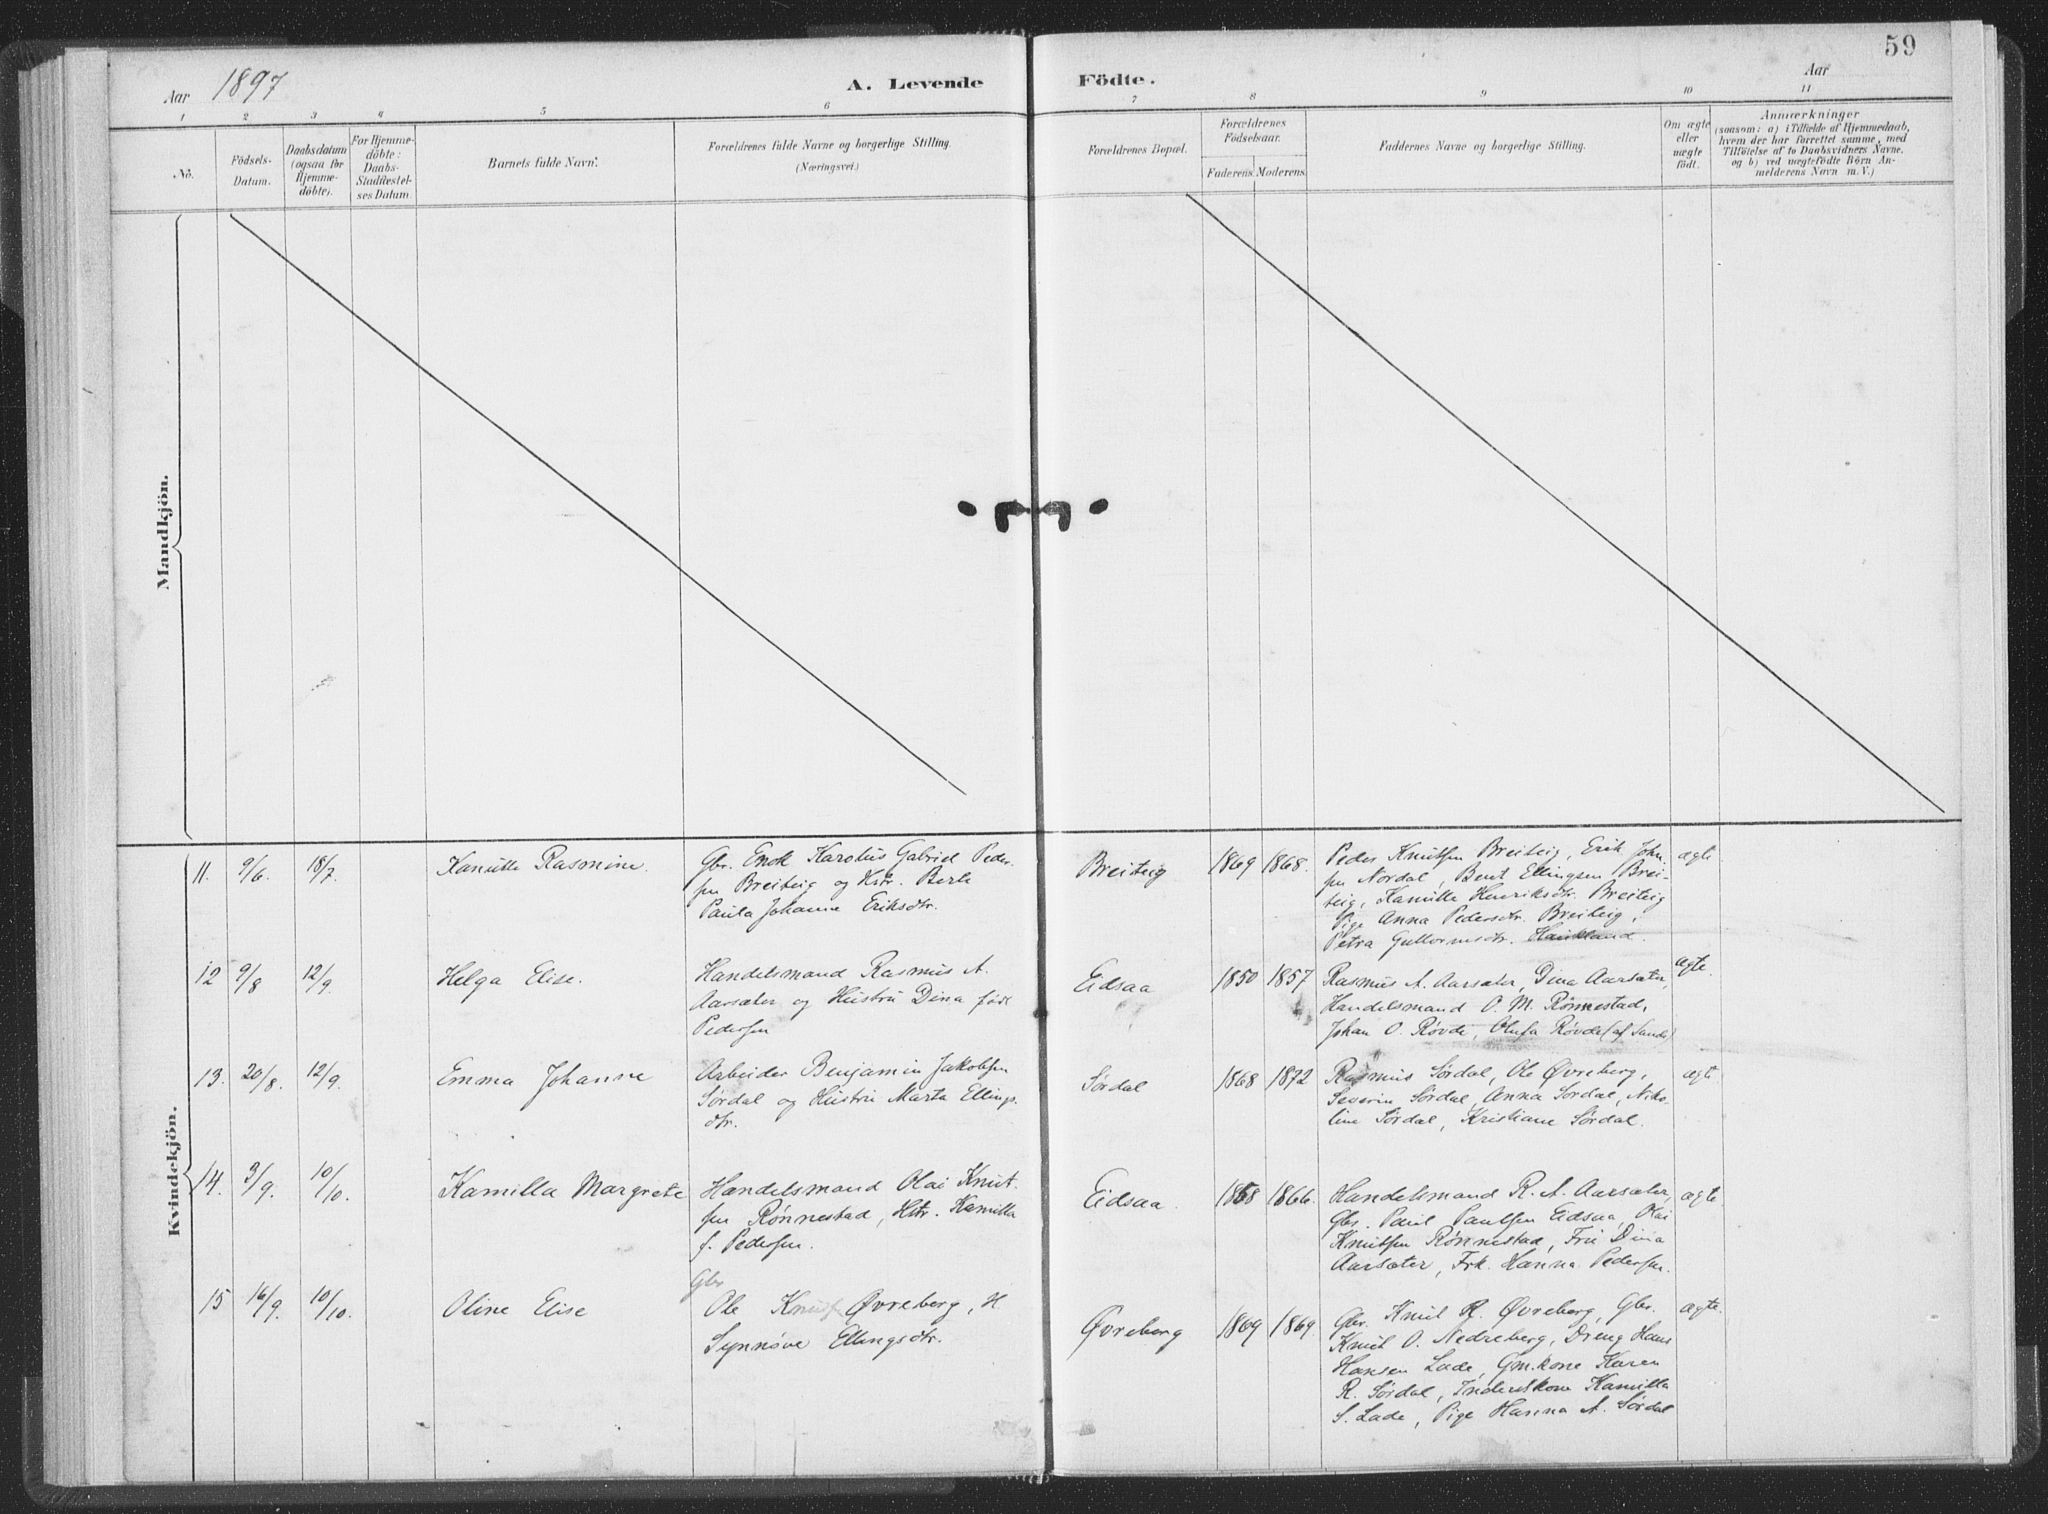 59
Aar 1897
A. Levende Födte.
Aar
1 2 3 4 5 6 7 8 9 10 11
No.
Födsels-
Datum.
Daabsdatum
(ogsaa for
Hjemme-
döbte).
For Hjemme-
döbte:
Daabs-
Stadfæstel-
ses Datum.
Barnets fulde Navn.
Forældrenes fulde Navne og borgerlige Stilling.
(Næringsvei.)
Forældrenes Bopæl.
Forældrenes
Födselsaar.
Faderens Moderens
Faddernes Navne og borgerlige Stilling.
Om ægte
eller
uægte
födt.
Anmærkninger
(saasom: a) i Tilfælde af Hjemmedaab,
hvem der har forrettet samme, med
Tilföielse af to Daabsvidners Navne.
og b) ved uægtefödte Börn An-
melderens Navn m. V.)
Mandkjön.
Kvindekjön.
11. 9/6. 18/7. Kamilla Rasmine.
Gbr. Enok Karolus Gabriel Peder-
sen Breiteig og Hstr. Berte
Paula Johanne Eriksdtr.
Breiteig 1869 1868.
Peder Knutsen Breiteig, Erik John-
sen Nordal, Bent Ellingsen Brei-
teig, Kamilla Henriksdtr. Breiteig
Pige Anna Pedersdtr. Breiteig,
Petra Guttormsdtr. Haukland.
ægte
12 9/8 12/9. Helga Elise.
Handelsmand Rasmus A.
Aarsæter og Hustru Dina född
Pedersen
Eidsaa 1850 1857
Rasmus A. Aarsæter, Dina Aarsæter,
Handelsmand O. M. Rönnestad,
Johan O. Røvde, Olufa Røvde (af Sande)
ægte.
13. 20/8. 12/9. Emma Johanne
Arbeider Benjamin Jakobsen
Sørdal og Hustru Marta Ellings-
dtr.
Sørdal 1868 1872
Rasmus Sørdal, Ole Øvreberg,
Severin Sørdal, Anna Sørdal, Niko-
line Sørdal, Kristiane Sørdal.
ægte
14. 3/9. 10/10. Kamilla Margrete
Handelsmand Olai Knut-
sen Rønnestad, Hstr. Kamilla
f. Pedersen.
Eidsaa. 1858 1866.
Handelsmand R. A. Aarsæter,
Gbr. Paul Paulsen Eidsaa, Olai
Knutsen Rønnestad, Fru Dina
Aarsæter, Frk. Hanna Pedersen.
ægte
15 16/9. 10/10. Oline Elise
Gbr
Ole Knuts. Øvreberg, H.
Synnøve Ellingsdtr.
Øvreberg 1869 1869.
Gbr. Knut R. Øvreberg, Gbr.
Knut O. Nedreberg, Dreng Hans
Hansen Lade, Gm.kone Karen
R. Sørdal, Inderstkone Kamilla
S. Lade, Pige Hanna A. Sørdal
ægte.